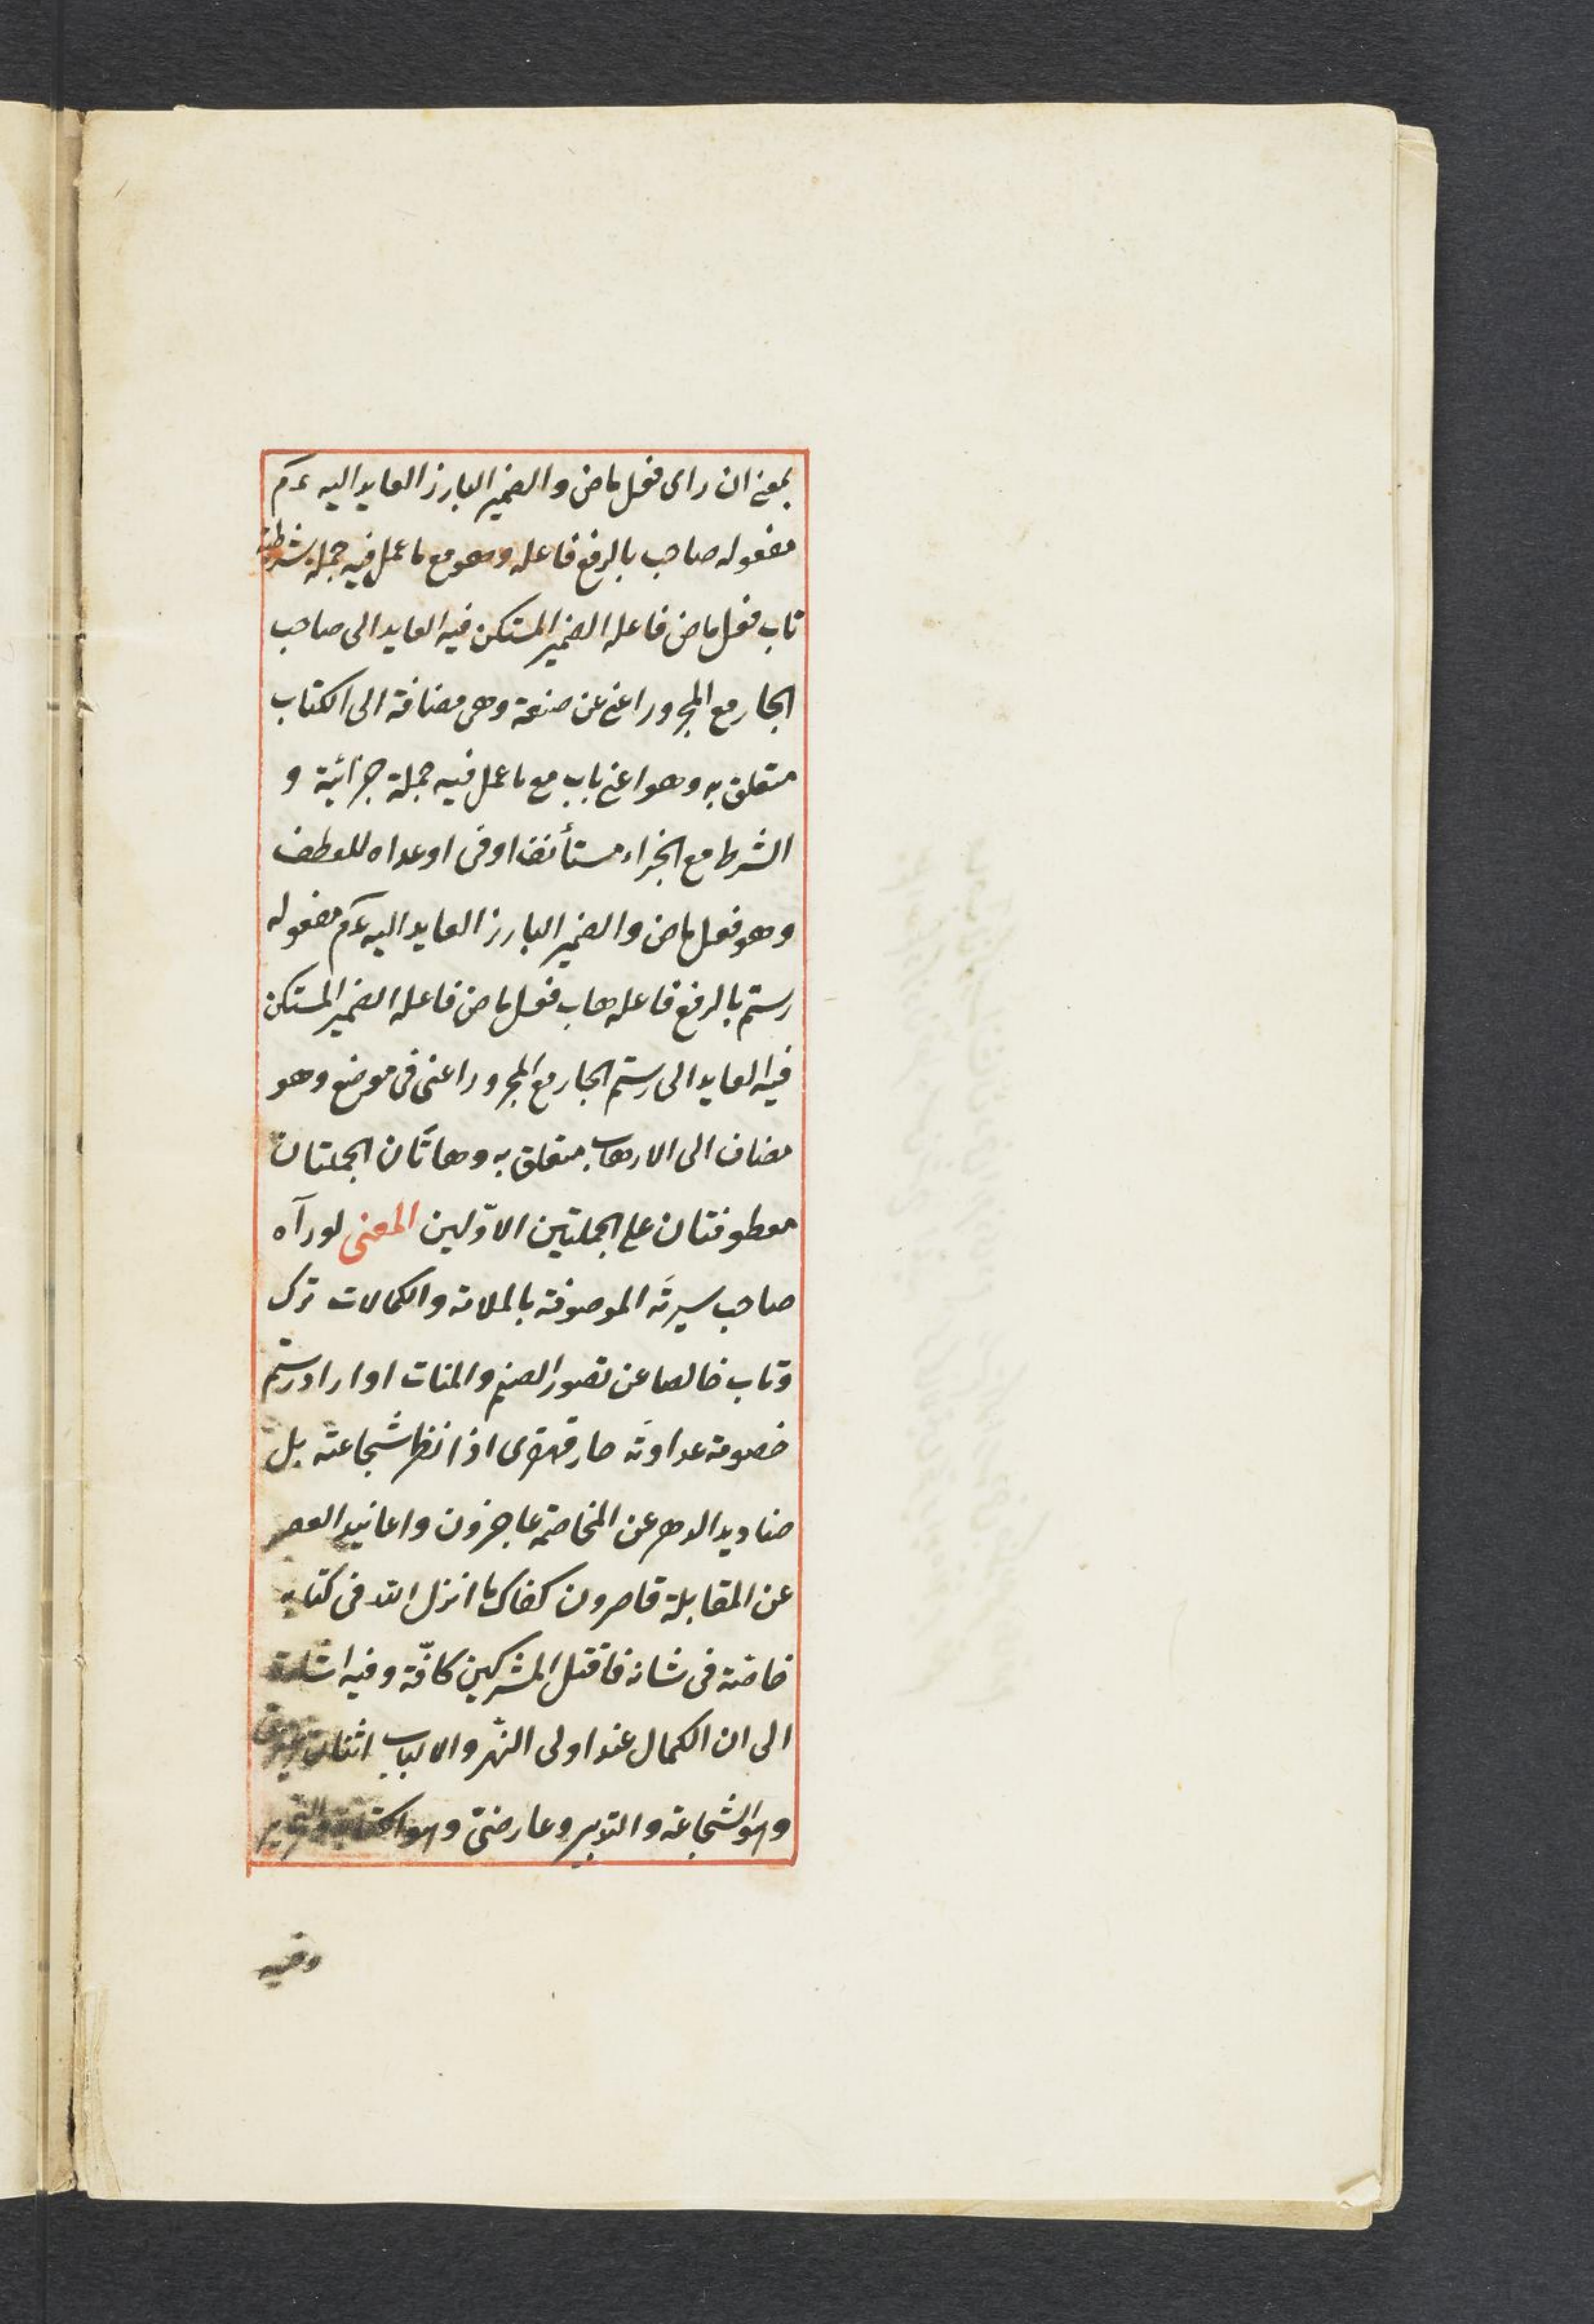 بمعنى ان راى فعل ماض والضمير البارز العايد اليه ءم
مفعوله صاحب بالرفع فاعله وهو مع ما عمل فيه جملة شرطية
تاب فعل ماض فاعله الضمير المستكن فيه العايد الى صاحب
الجار مع المجرور اعنى عن صنعة وهى مضافة الى الكتاب
متعلق به وهو اعنى باب مع ما عمل فيه جملة جزائية و
الشرط مع الجزاء مستأنف او فى او عداه للعطف
وهو فعل ماض والضمير البارز العايد اليه ءم مفعوله
رستم بالرفع فاعله هاب فعل ماض فاعله الضمير المستكن
فيه العايد الى رستم الجار مع المجرور اعنى فى موضع وهو
مضاف الى الارهاب متعلق به وهاتان الجملتان
معطوفتان على الجملتين الاوّلين المعنى لو رآه
صاحب سيرته الموصوفة بالملاته والكمالات ترك
وتاب خالصا عن تصور الصنم والمنات او اراد رستم
خصومة عداوته صار قهقرى اذا نظر شجاعته بل
صناديد الدهر عن المخاصمة عاجزون واعانيد العصر
عن المقابلة قاصرون كفاك ما انزل الله فى كتابه
خاصة فى شانه فاقتل المشركين كافّة وفيه اشارة
الى ان الكمال عند اولى النهر والالباب اثنان
وهو الشجاعة والتدبير وعارضىّ وهو الكتابة والتحرير
وفيه